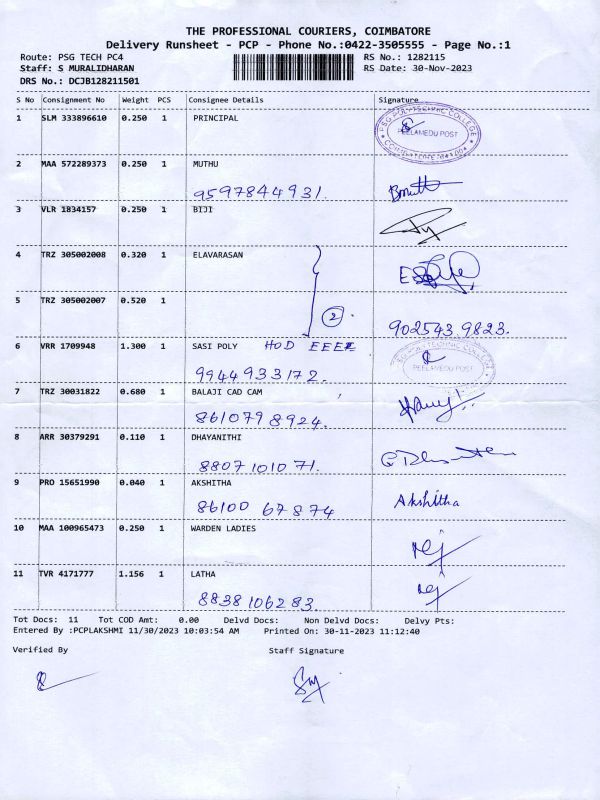 THE PROFESSIONAL COURIERS, COIMBATORE
Delivery Runsheet - PCP - Phone No.:0422-3505555 - Page No.:1
Route: PSG TECH PC4
RS No.: 1282115
Staff: S MURALIDHARAN
RS Date: 30-Nov-2023
DRS No.: DCJB128211501
S No Consignment No Weight PCS Consignee Details Signature
1 SLM 333896610 0.250 1 PRINCIPAL
PSG POLYTECHNIC COLLEGE
PEELAMEDU POST
2 MAA 572289373 0.250 1 MUTHU
9597844931.
3 VLR 1834157 0.250 1 BIJI
4 TRZ 305002008 0.320 1 ELAVARASAN
5 TRZ 305002007 0.520 1
2
902543 9823.
6 VRR 1709948 1.300 1 SASI POLY HOD EEEE
9944933172.
PSG POLYTECHNIC COLLEGE
PEELAMEDU POST
7 TRZ 30031822 0.680 1 BALAJI CAD CAM
8610798924.
8 ARR 30379291 0.110 1 DHAYANITHI
8807101071.
9 PRO 15651990 0.040 1 AKSHITHA
86100 67874
Akshitha
10 MAA 100965473 0.250 1 WARDEN LADIES
11 TVR 4171777 1.156 1 LATHA
8838106283.
Tot Docs: 11 Tot COD Amt: 0.00 Delvd Docs: Non Delvd Docs: Delvy Pts:
Entered By :PCPLAKSHMI 11/30/2023 10:03:54 AM Printed On: 30-11-2023 11:12:40
Verified By Staff Signature